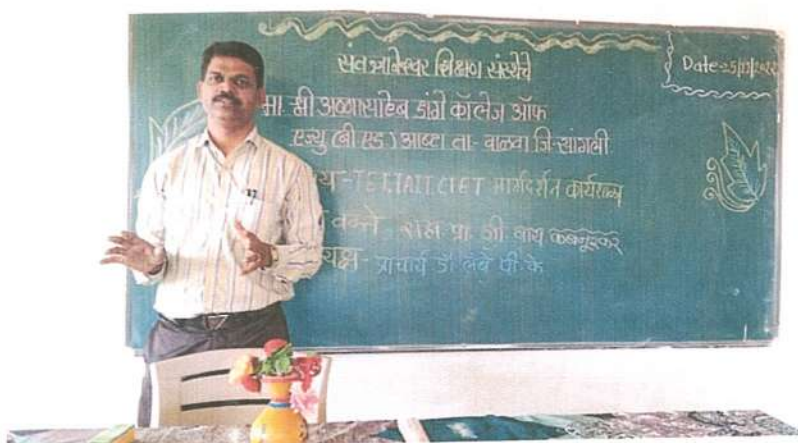 संत ज्ञानेश्वर शिक्षण संस्थेचे
Date=25
मा. श्री अण्णासाहेब डांगे कॉलेज ऑफ
एज्यु (बी एड) आष्टा ता- वाळवा जि-सांगली
TET,TAIT,CTET मार्गदर्शन कार्यशाळा
वक्ते प्रा. श्री.
प्राचार्य डॉ लबे पी.के